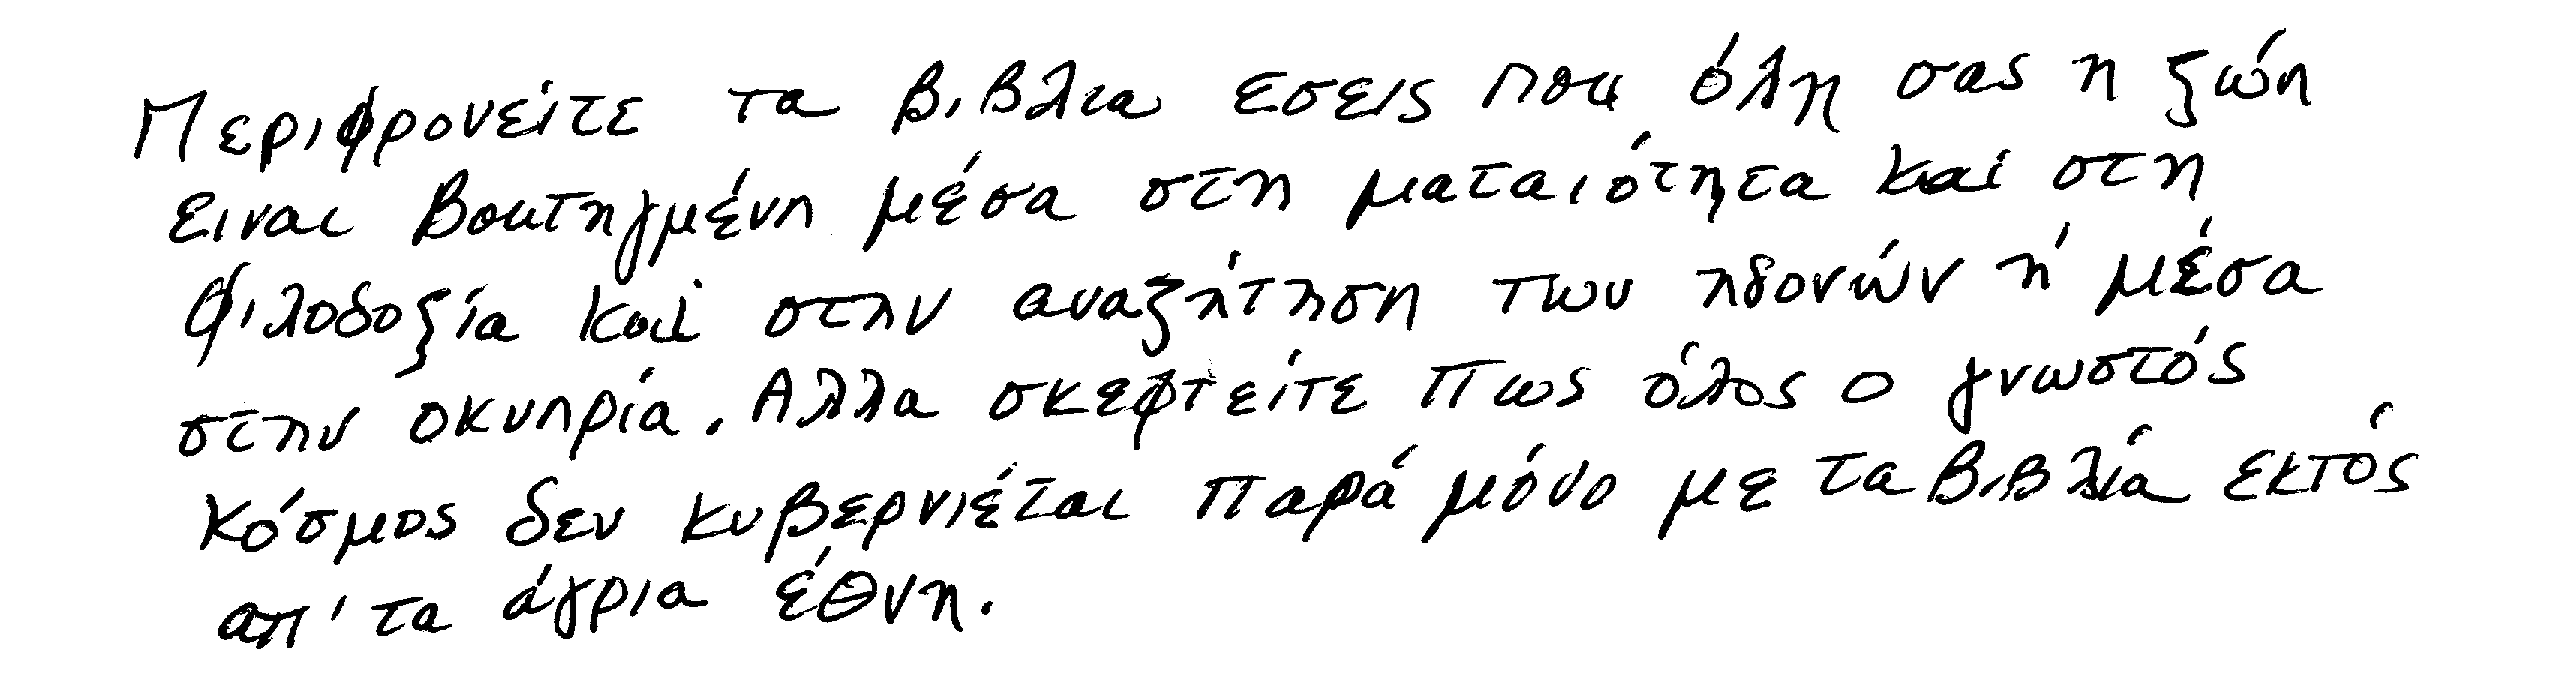 Περιφρονείτε τα βιβλια εσεις που όλη σας η ζώη
ειναι βουτηγμένη μέσα στη ματαιότητα και στη
φιλοδοξία και στην αναζήτηση των ηδονών ή μέσα
στην οκνηρία. Αλλα σκεφτείτε πως όλος ο γνωστός
κόσμος δεν κυβερνιέται παρά μόνο με τα βιβλία εκτός
απ' τα άγρια έθνη.